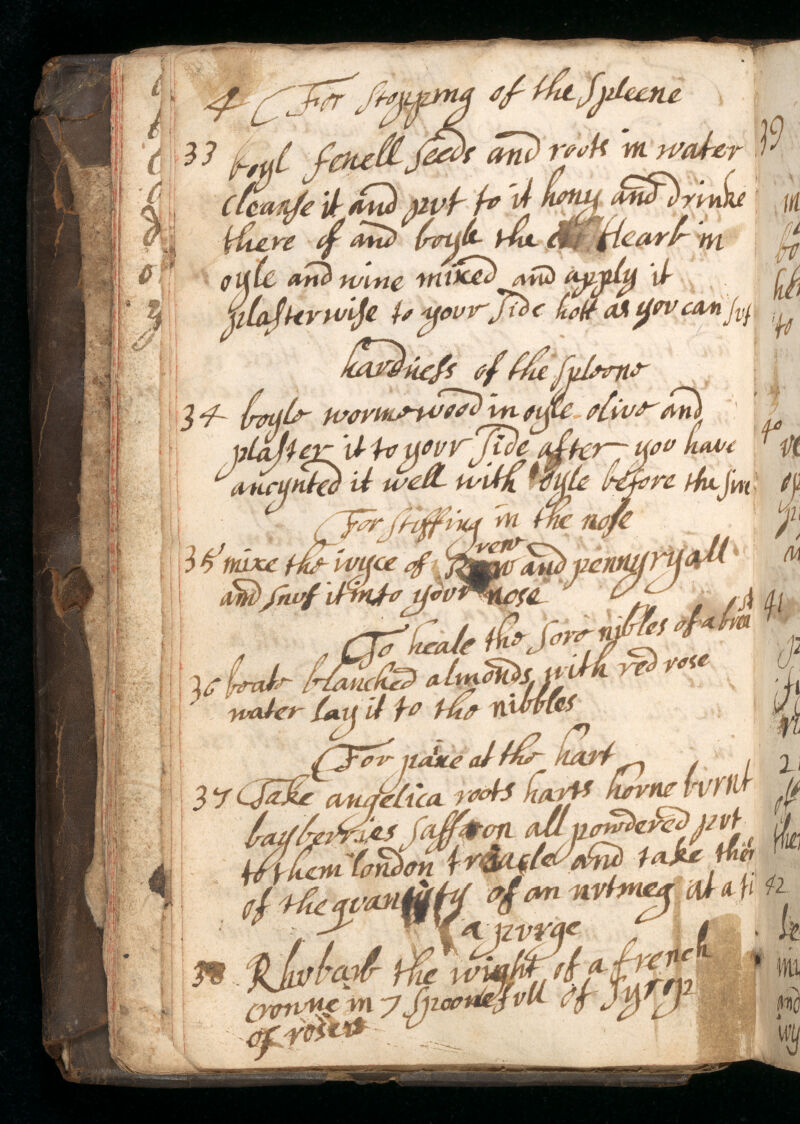 4 For stopping of the spleene
33 boyl fenell seeds and roots in water
cleanse it and pvt to it hony and drinke
there of and boyle the Hearb in
oyle and wine mixed and apply it
plasterwise to yovr side hott as yov can svf
hardness of the spleene
34 boyle wormewood in oyle olive and
plaster it to yovr side after yov have
anoynted it well with oyle before the
For stiffing in the nose
rew
35 mixe the ivyce of and pennyryall
and snvf it into yovr nose
To heale the sore nibles of a breast
36 beate blanched almonds with red rose
water lay it to the nibbles
For paine at the hart
37 Take angelica roots harts horne bvrnt
bayberries saffaron all powdered pvt
to them london treacle and take
of the qvantity of an nvtmeg at a ti
a pvrge
38 Rhvbarb the wight of a french
crowne in 7 spoonefvll of syrop
of roses
39
40
41
42